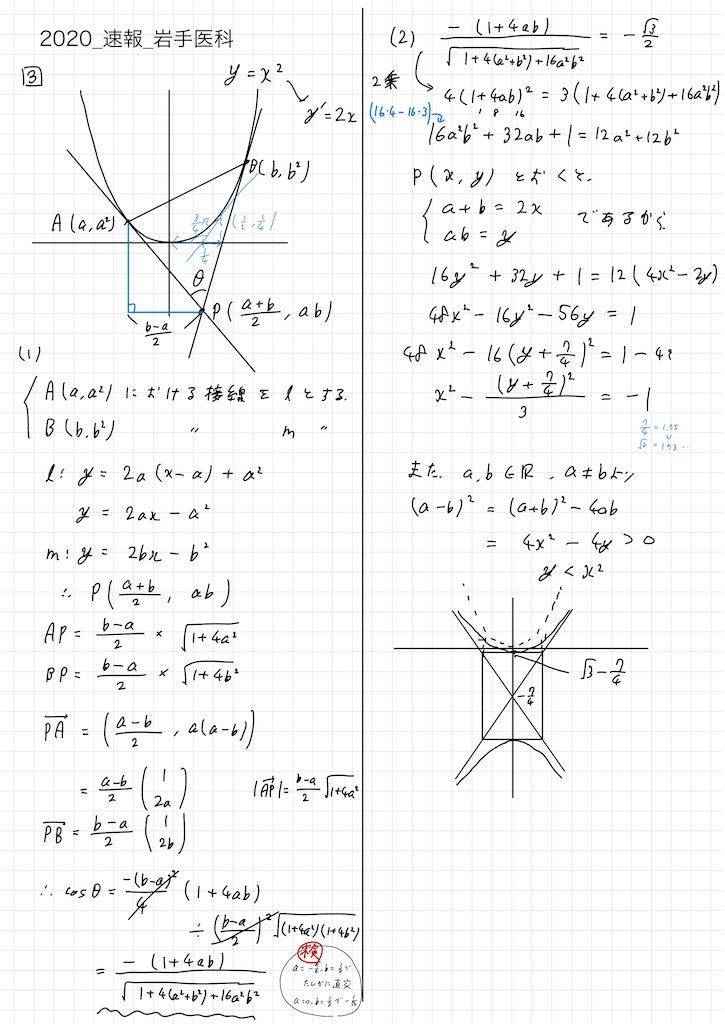 2020_速報_岩手医科
3
y = x²
y' = 2x
B(b, b²)
A(a, a²)
θ
P(a+b/2, ab)
b-a/2
(1)
A(a, a²) における接線を l とする.
B(b, b²) 〃 m 〃
l: y = 2a(x-a) + a²
y = 2ax - a²
m: y = 2bx - b²
∴ P(a+b/2, ab)
AP = b-a/2 × √1+4a²
BP = b-a/2 × √1+4b²
PA = (a-b/2, a(a-b))
= a-b/2 (1 2a)
|AP| = b-a/2 √1+4a²
PB = b-a/2 (1 2b)
∴ cosθ = -(b-a)²/4 (1+4ab)
÷ (b-a/2)² √(1+4a²)(1+4b²)
= -(1+4ab)/√1+4(a²+b²)+16a²b²
検
a=-1/2, b=1/2で
たしかに直交
(2) -(1+4ab)/√1+4(a²+b²)+16a²b² = -√3/2
2乗
4(1+4ab)² = 3(1+4(a²+b²)+16a²b²)
1 8 16
(16·4-16·3)
16a²b² + 32ab + 1 = 12a² + 12b²
P(x, y) とおくと.
a+b = 2x
ab = y
であるから
16y² + 32y + 1 = 12(4x²-2y)
48x² - 16y² - 56y = 1
48x² - 16(y+7/4)² = 1-49
x² - (y+7/4)²/3 = -1
7/4 = 1.75
√3 = 1.73...
また a, b ∈ ℝ, a≠b より
(a-b)² = (a+b)² - 4ab
= 4x² - 4y > 0
y < x²
√3 - 7/4
-7/4